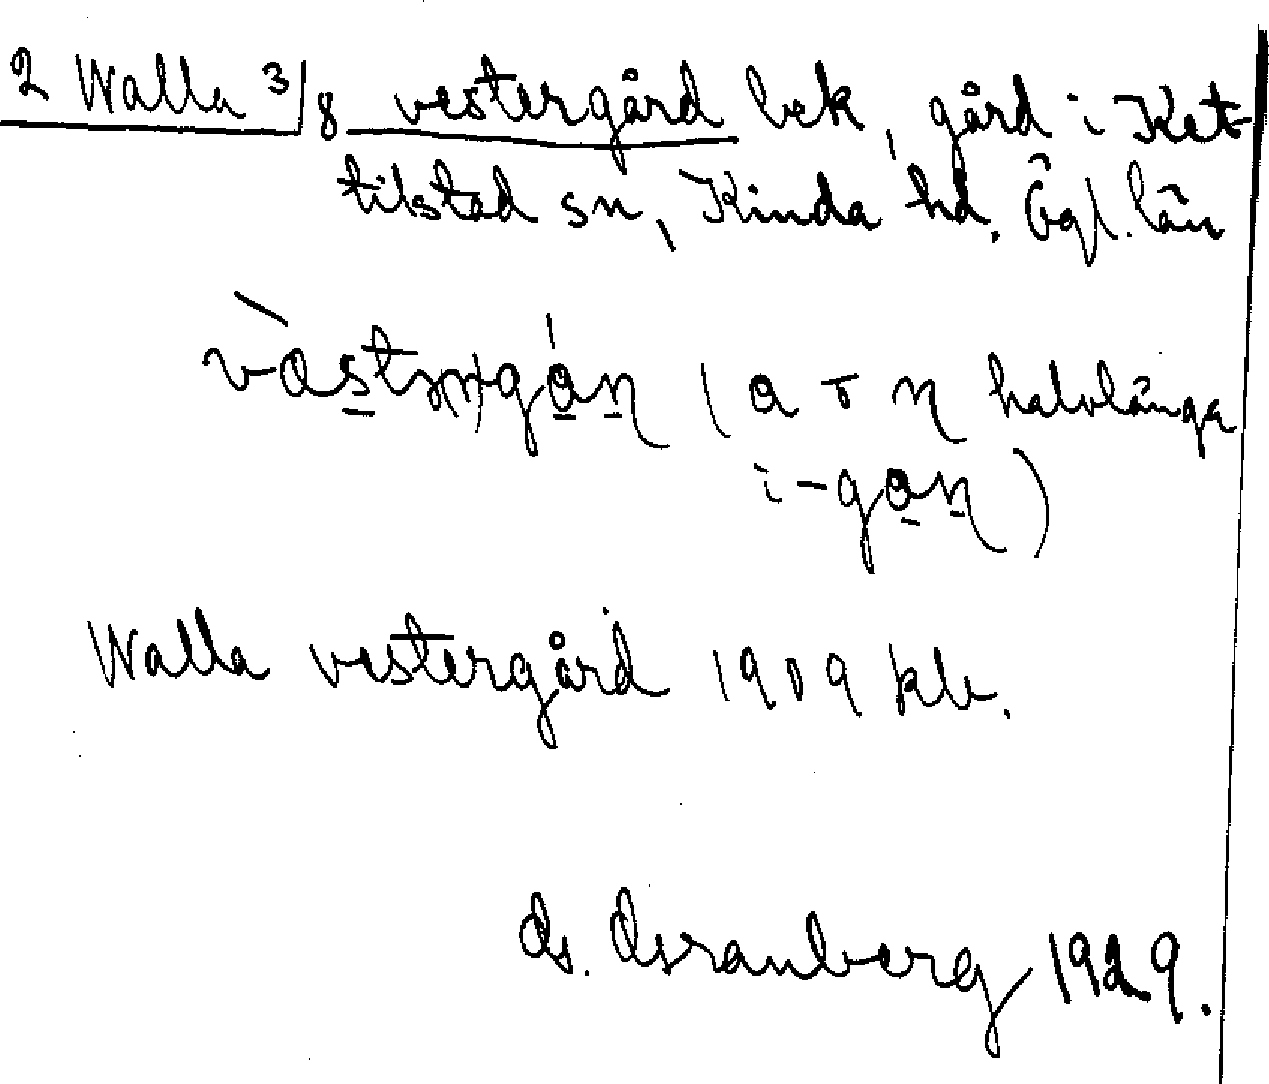 2 Walla 3/8 vestergård bek, gård i Ket-
tilstad sn, Kinda hd. Ögl. län
(a o n halvlånga
i -gan)
Walla vestergård 1909 kb.
1929.